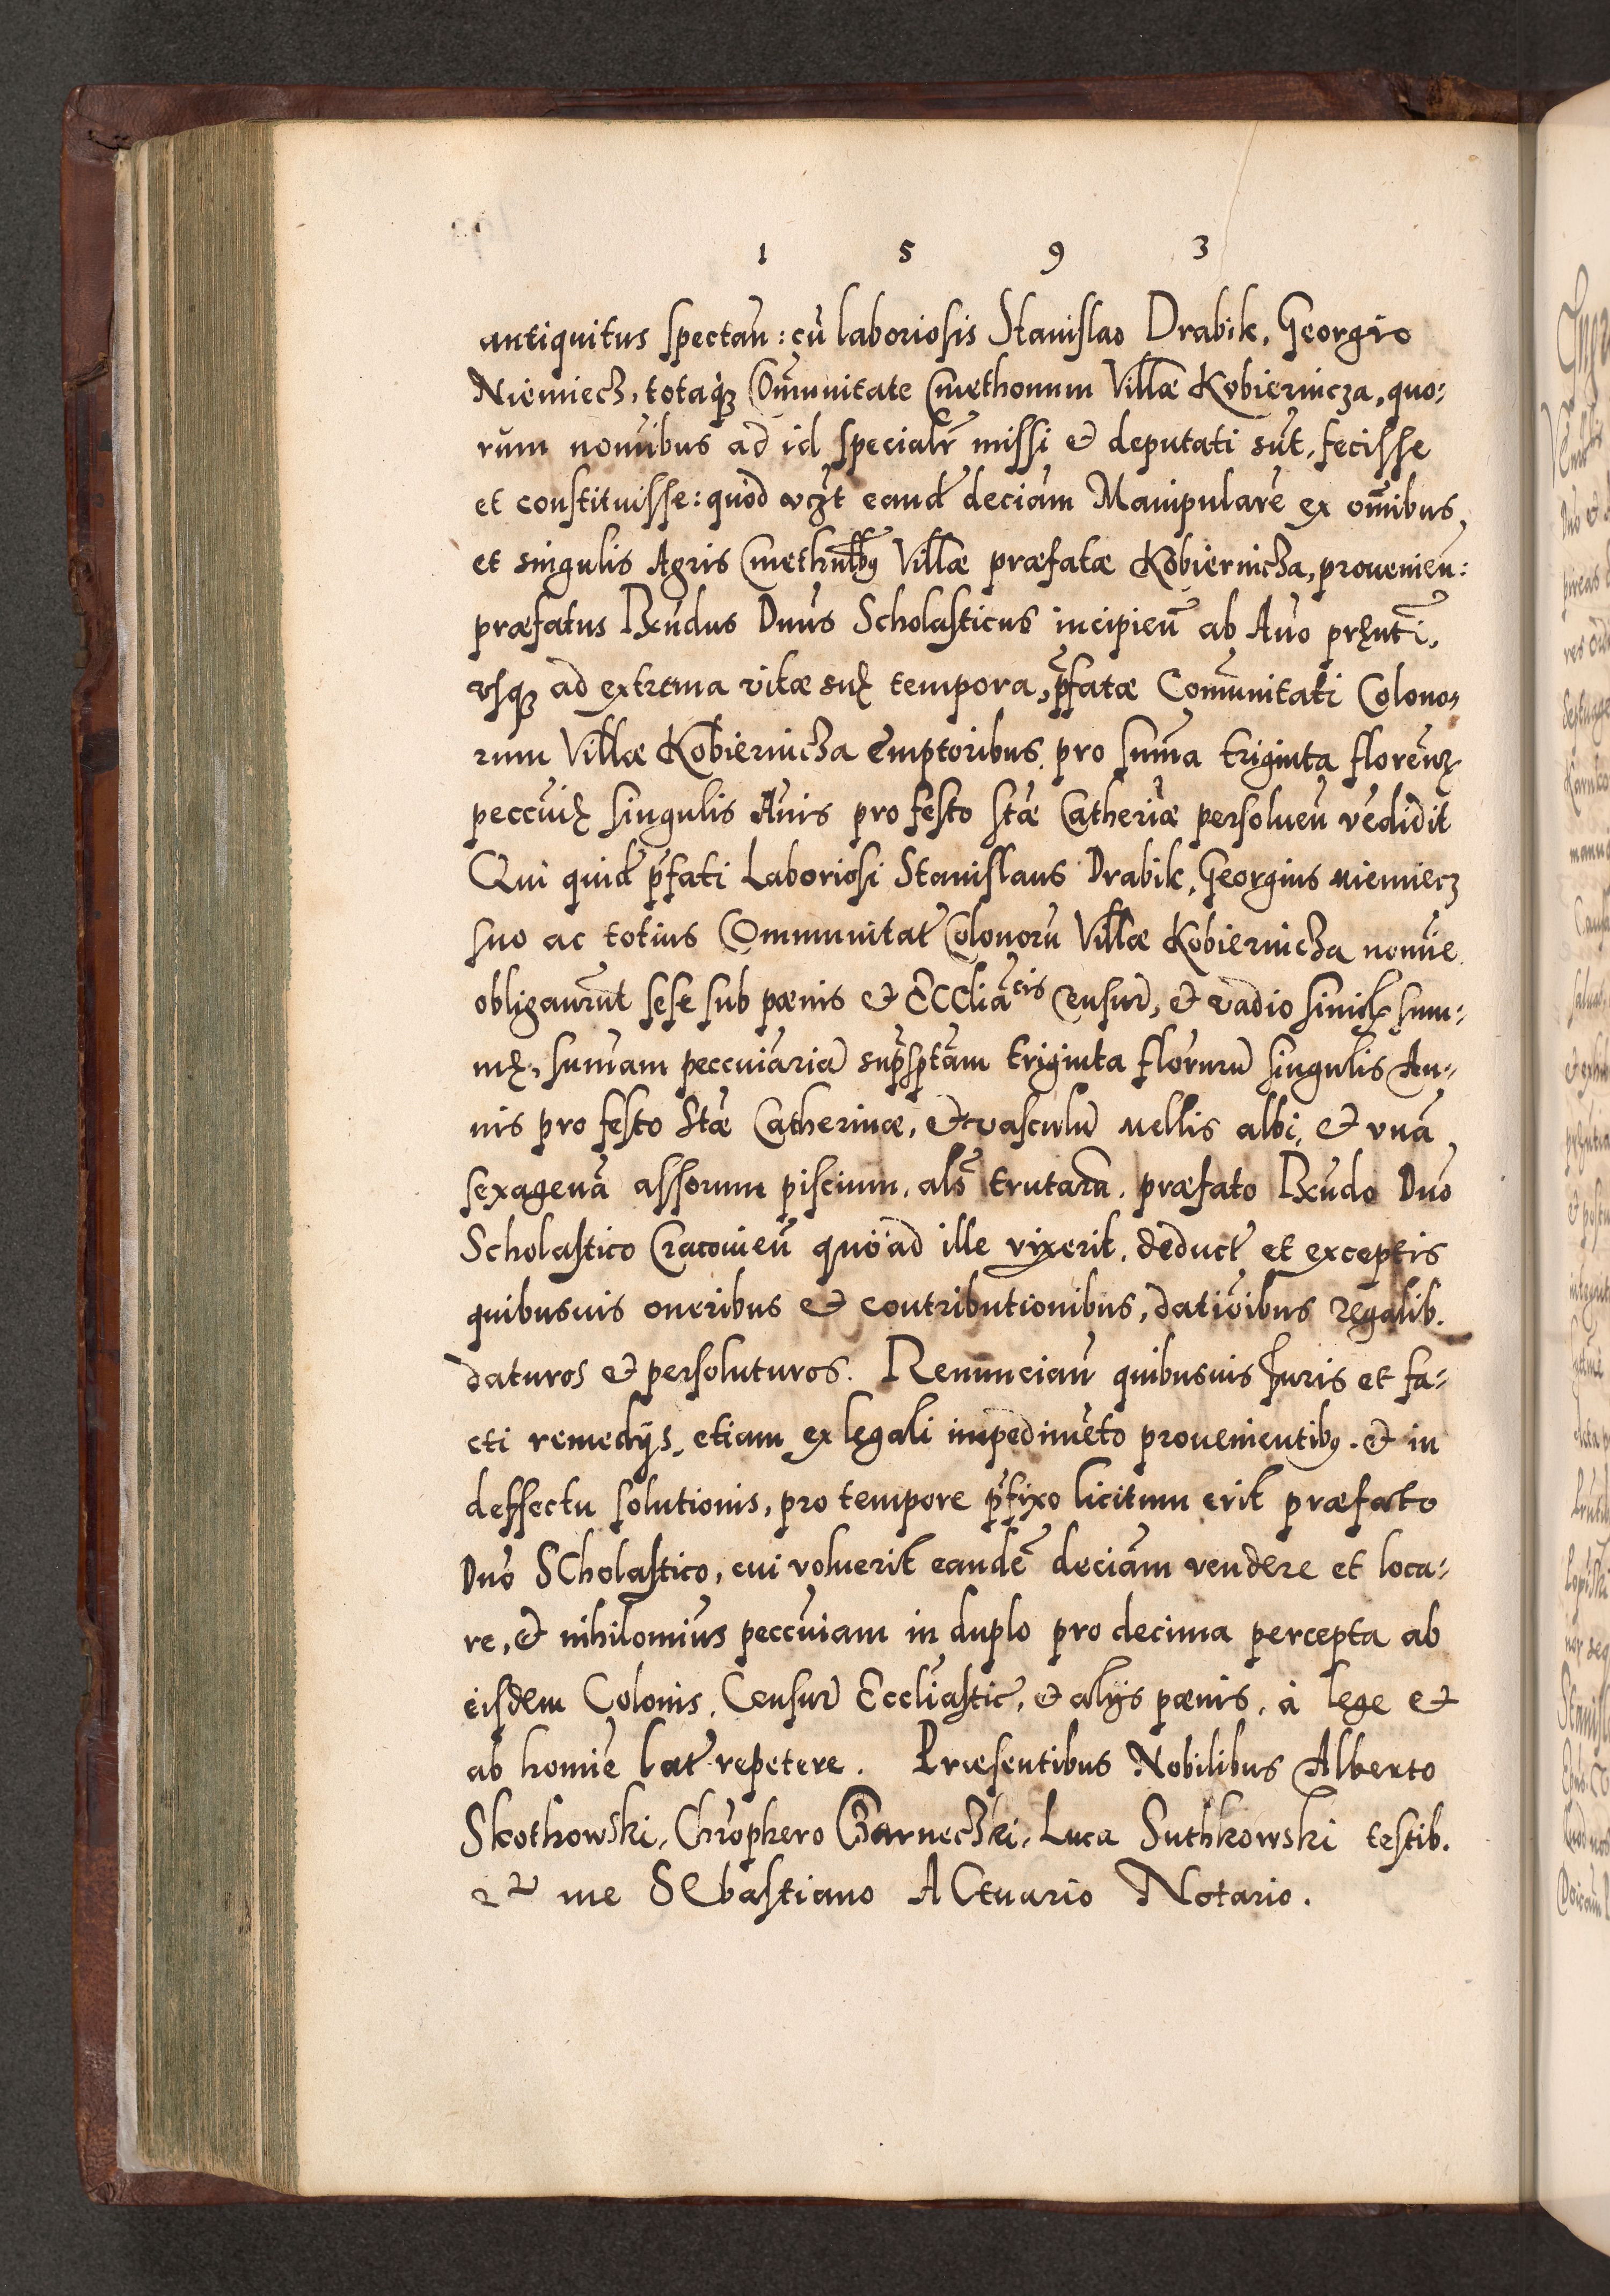 1 5 9 3
antiquitus spectan̄: cū laboriosis Stanislao Drabik, Georgio
Niemiecz, totaq́ꝫ Com̄unitate Cmethonum Villæ Kobiernicza, quo-
rum nomībus ad id specialr̄ missi et deputati sūt, fecisse
et constituisse: quod vcꝫt eand̄ decīam Manipularē ex om̄ibus,
et singulis Agris Cmethn̄lbꝰ Villæ præfatæ Kobiernicza, prouenien̄:
præfatus Rxn̄dus Dn̄us Scholasticus incipien̄ ab An̄o pręn̄ti,
vsqꝫ ad extrema vitæ suę tempora, p̄fatæ Com̄unitati Colono-
rum Villæ Kobiernicza emptoribus pro sum̄a triginta florenꝝ
peccūię singulis An̄is pro festo S̄tæ Catherīæ persoluen̄ vendidit
Qui quid̄ p̄fati Laboriosi Stanislaus Drabik, Georgius Niemiecz
suo ac totius Communitat̄ Colonorū Villæ Kobiernicza nomīe
obligaurūt sese sub pœnis et Eccliācis Censur̄, et vadio similꝭ sum-
mę, sum̄am peccuīariā sup̄sptam triginta florn̄rū singulis An-
nis pro festo S̄tæ Catherinæ, et vasculū mellis albi, et vnā
sexagenā assorum piscium, als̄ trutarn̄, præfato Rxn̄do Dn̄o
Scholastico Cracouien̄ quoad ille vixerit, deduct̄ et exceptis
quibusuis oneribus et contributionibus, datioībus regalib.
daturos et persoluturos. Renuncian̄ quibusuis Juris et fa-
cti remedijs, etiam ex legali impedimēto prouenientibꝰ. et in
deffectu solutionis, pro tempore p̄fixo licitum erit præfacto
Dn̄o Scholastico, cui voluerit eandē decīam vendere et loca-
re, et nihilomīus peccūiam in duplo pro decima percepta ab
eisdem Colonis, Censur̄ Eccliāstic̄, et alijs pœnis, à lege et
ab homīe lat̄ repetere. Præsentibus Nobilibus Alberto
Skothowski, Chrōphero Czarneczki, Luca Suthkowski testib.
et me Sebastiano Actuario Notario.